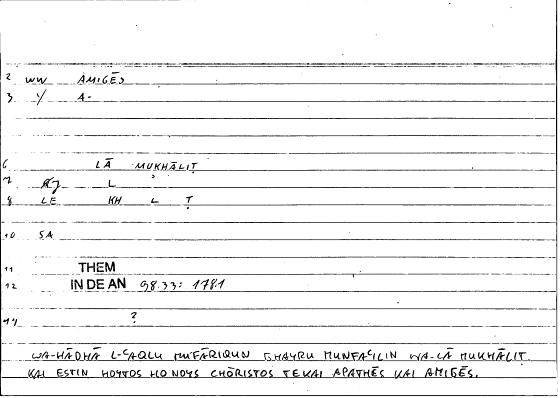 2 WW AMIGĒS
3 Y A-
6 LĀ MUKHĀLIṬ
7 AJ L
8 LE KH L Ṭ
10 SA
11 THEM
12 IN DE AN 98.33: 178.1
14 ?
WA-HĀDHĀ L-CAQLU MUFĀRIQUN GHAYRU MUNFACILIN WA-LĀ MUKHĀLIṬ
KAI ESTIN HOYTOS HO NOYS CHŌRISTOS TE KAI APATHĒS KAI AMIGĒS.